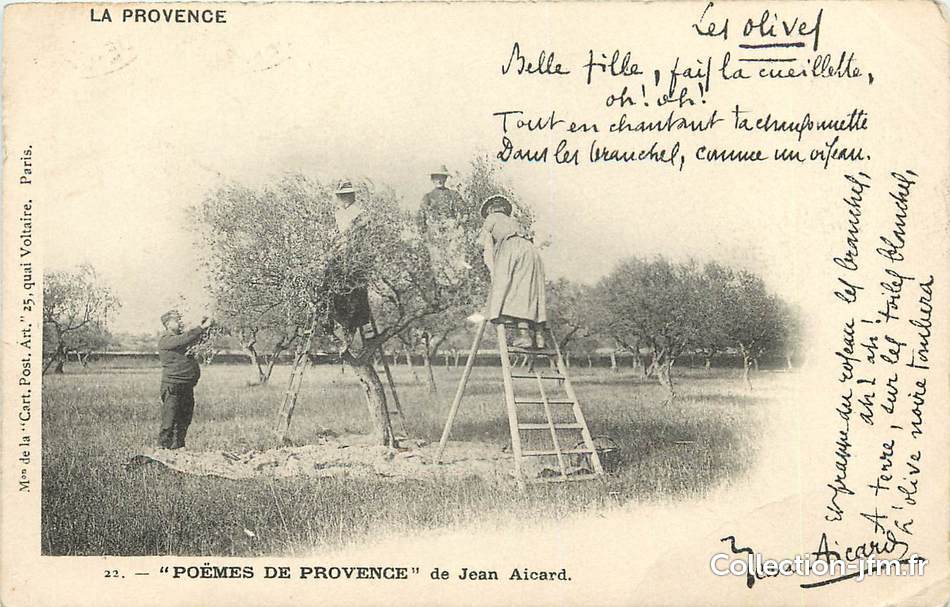 LA PROVENCE
Les olives
Belle fille, fais la cueillette,
oh! oh!
Tout en chantant ta chansonnette
Dans les branches, comme un oiseau.
Et frappe du roseau les branches,
ah! ah!
A terre, sur les toiles blanches,
L'olive noire tombera
Jean Aicard
Mon de la "Cart. Post. Art." 25, quai Voltaire. Paris.
22. — "POËMES DE PROVENCE" de Jean Aicard.
Collection-jfm.fr